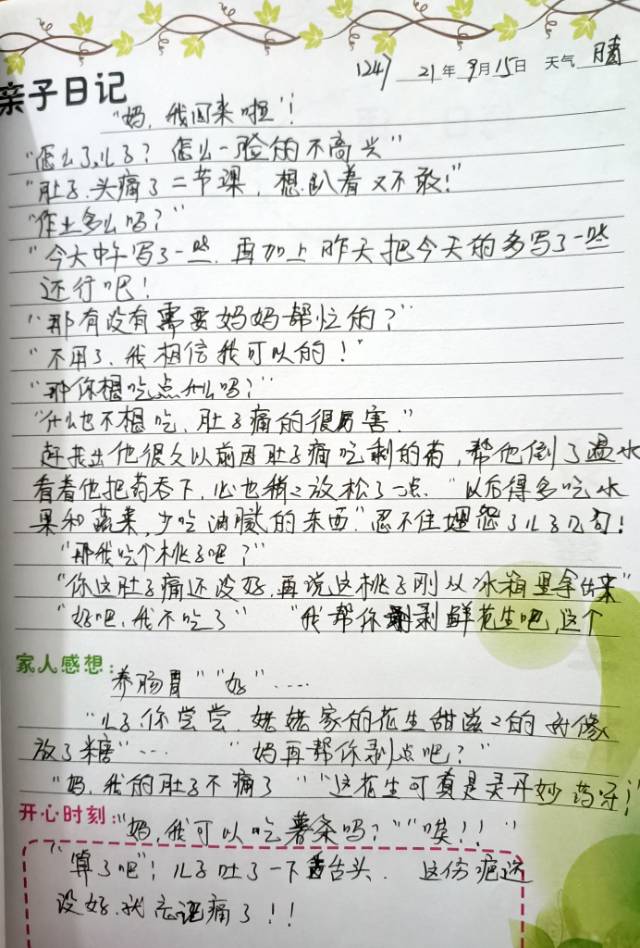 (24) 21年9月15日 天气 晴
亲子日记
"妈，我回来啦"！
"怎么了儿子？怎么一脸的不高兴"
"肚子、头痛了二节课，想趴着又不敢！"
"作业多么吗？"
"今天中午写了一些，再加上昨天把今天的多写了一些
还行吧！
"那有没有需要妈妈帮忙的？"
"不用了，我相信我可以的！"
"那你想吃点什么吗？"
"什么也不想吃，肚子痛的很厉害。"
赶找出他很久以前因肚子痛吃剩的药，帮他倒了温水
看着他把药吞下，心也稍稍放松了一点。"以后得多吃水
果和蔬菜，少吃油腻的东西"忍不住埋怨了儿子几句！
"那我吃个桃子吧？"
"你这肚子痛还没好，再说这桃子刚从冰箱里拿出来"
"好吧，我不吃了" "我帮你剥鲜花生吧，这个
家人感想：
养肠胃" "好"……
"儿子你尝尝，姥姥家的花生甜滋滋的好像
放了糖"… "妈再帮你剥点吧？"
"妈，我的肚子不痛了" "这花生可真是灵丹妙药呀！"
开心时刻：
"妈，我可以吃薯条吗？" "唉！！"
"算了吧"！儿子吐了一下舌头。这伤疤还
没好，就忘记痛了！！